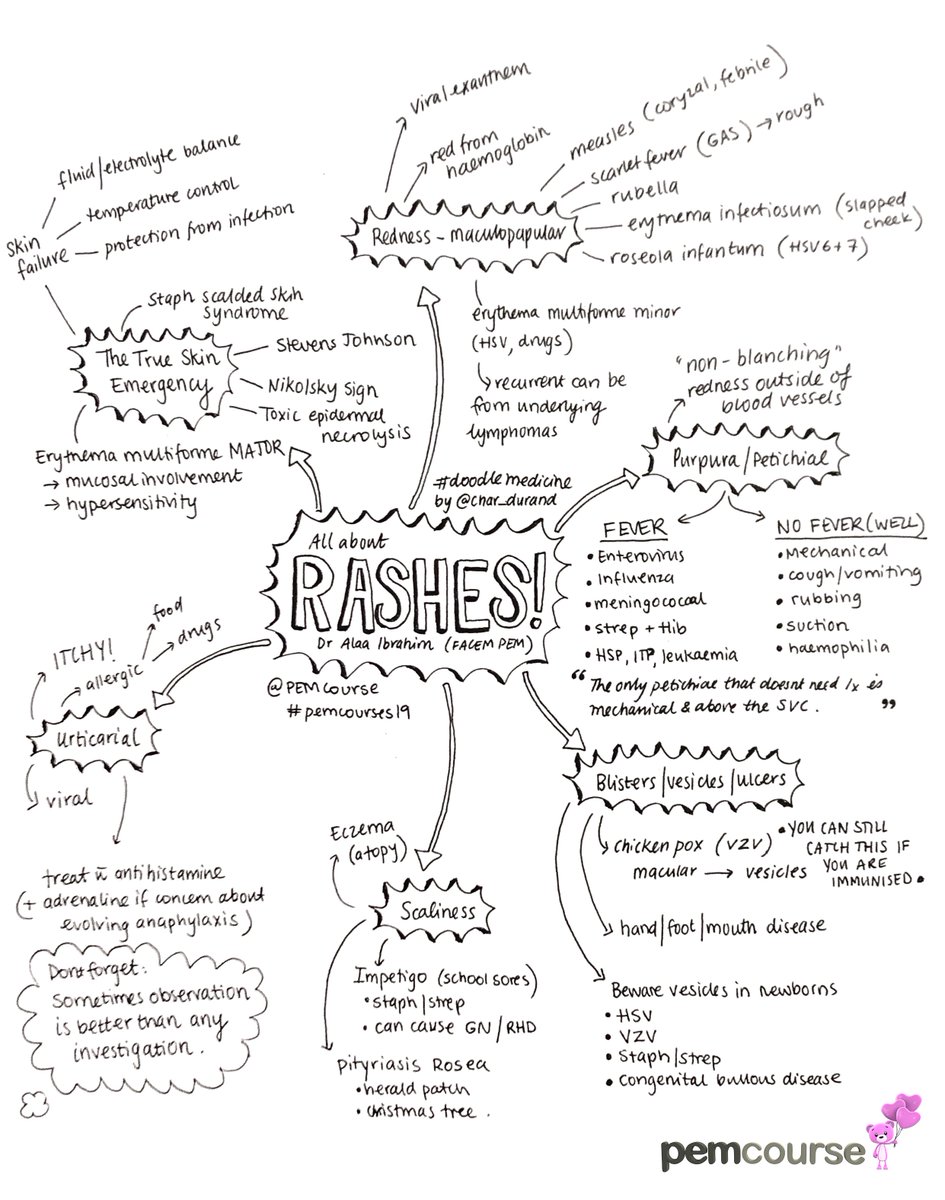 All about
RASHES!
Dr Alaa Ibrahim (FACEM PEM)
#doodlemedicine
by @char_durand
@PEMcourse
#pemcourses19
The True Skin
Emergency
skin
failure
fluid/electrolyte balance
temperature control
protection from infection
Staph scalded skin
syndrome
Stevens Johnson
Nikolsky sign
Toxic epidermal
necrolysis
Erythema multiforme MAJOR
→ mucosal involvement
→ hypersensitivity
Redness - maculopapular
viral exanthem
red from
haemoglobin
measles (coryzal, febrile)
scarlet fever (GAS) → rough
rubella
erythema infectiosum (slapped
cheek)
roseola infantum (HSV6+7)
erythema multiforme minor
(HSV, drugs)
↳ recurrent can be
from underlying
lymphomas
Purpura/Petichial
"non-blanching"
redness outside of
blood vessels
FEVER
• Enterovirus
• Influenza
• meningococcal
• strep + Hib
• HSP, ITP, leukaemia
NO FEVER (WELL)
• Mechanical
• cough/vomiting
• rubbing
• suction
• haemophilia
"The only petichiae that doesnt need Ix is
mechanical & above the SVC. "
Blisters/vesicles/ulcers
chicken pox (VZV)
macular → vesicles
• YOU CAN STILL
CATCH THIS IF
YOU ARE
IMMUNISED •
hand/foot/mouth disease
Beware vesicles in newborns
• HSV
• VZV
• Staph/strep
• congenital bullous disease
Scaliness
Eczema
(atopy)
Impetigo (school sores)
• staph/strep
• can cause GN/RHD
Pityriasis Rosea
• herald patch
• christmas tree .
Urticarial
ITCHY!
→ allergic
food
drugs
viral
treat c̄ antihistamine
(+ adrenaline if concern about
evolving anaphylaxis)
Dont forget:
Sometimes observation
is better than any
investigation.
pemcourse